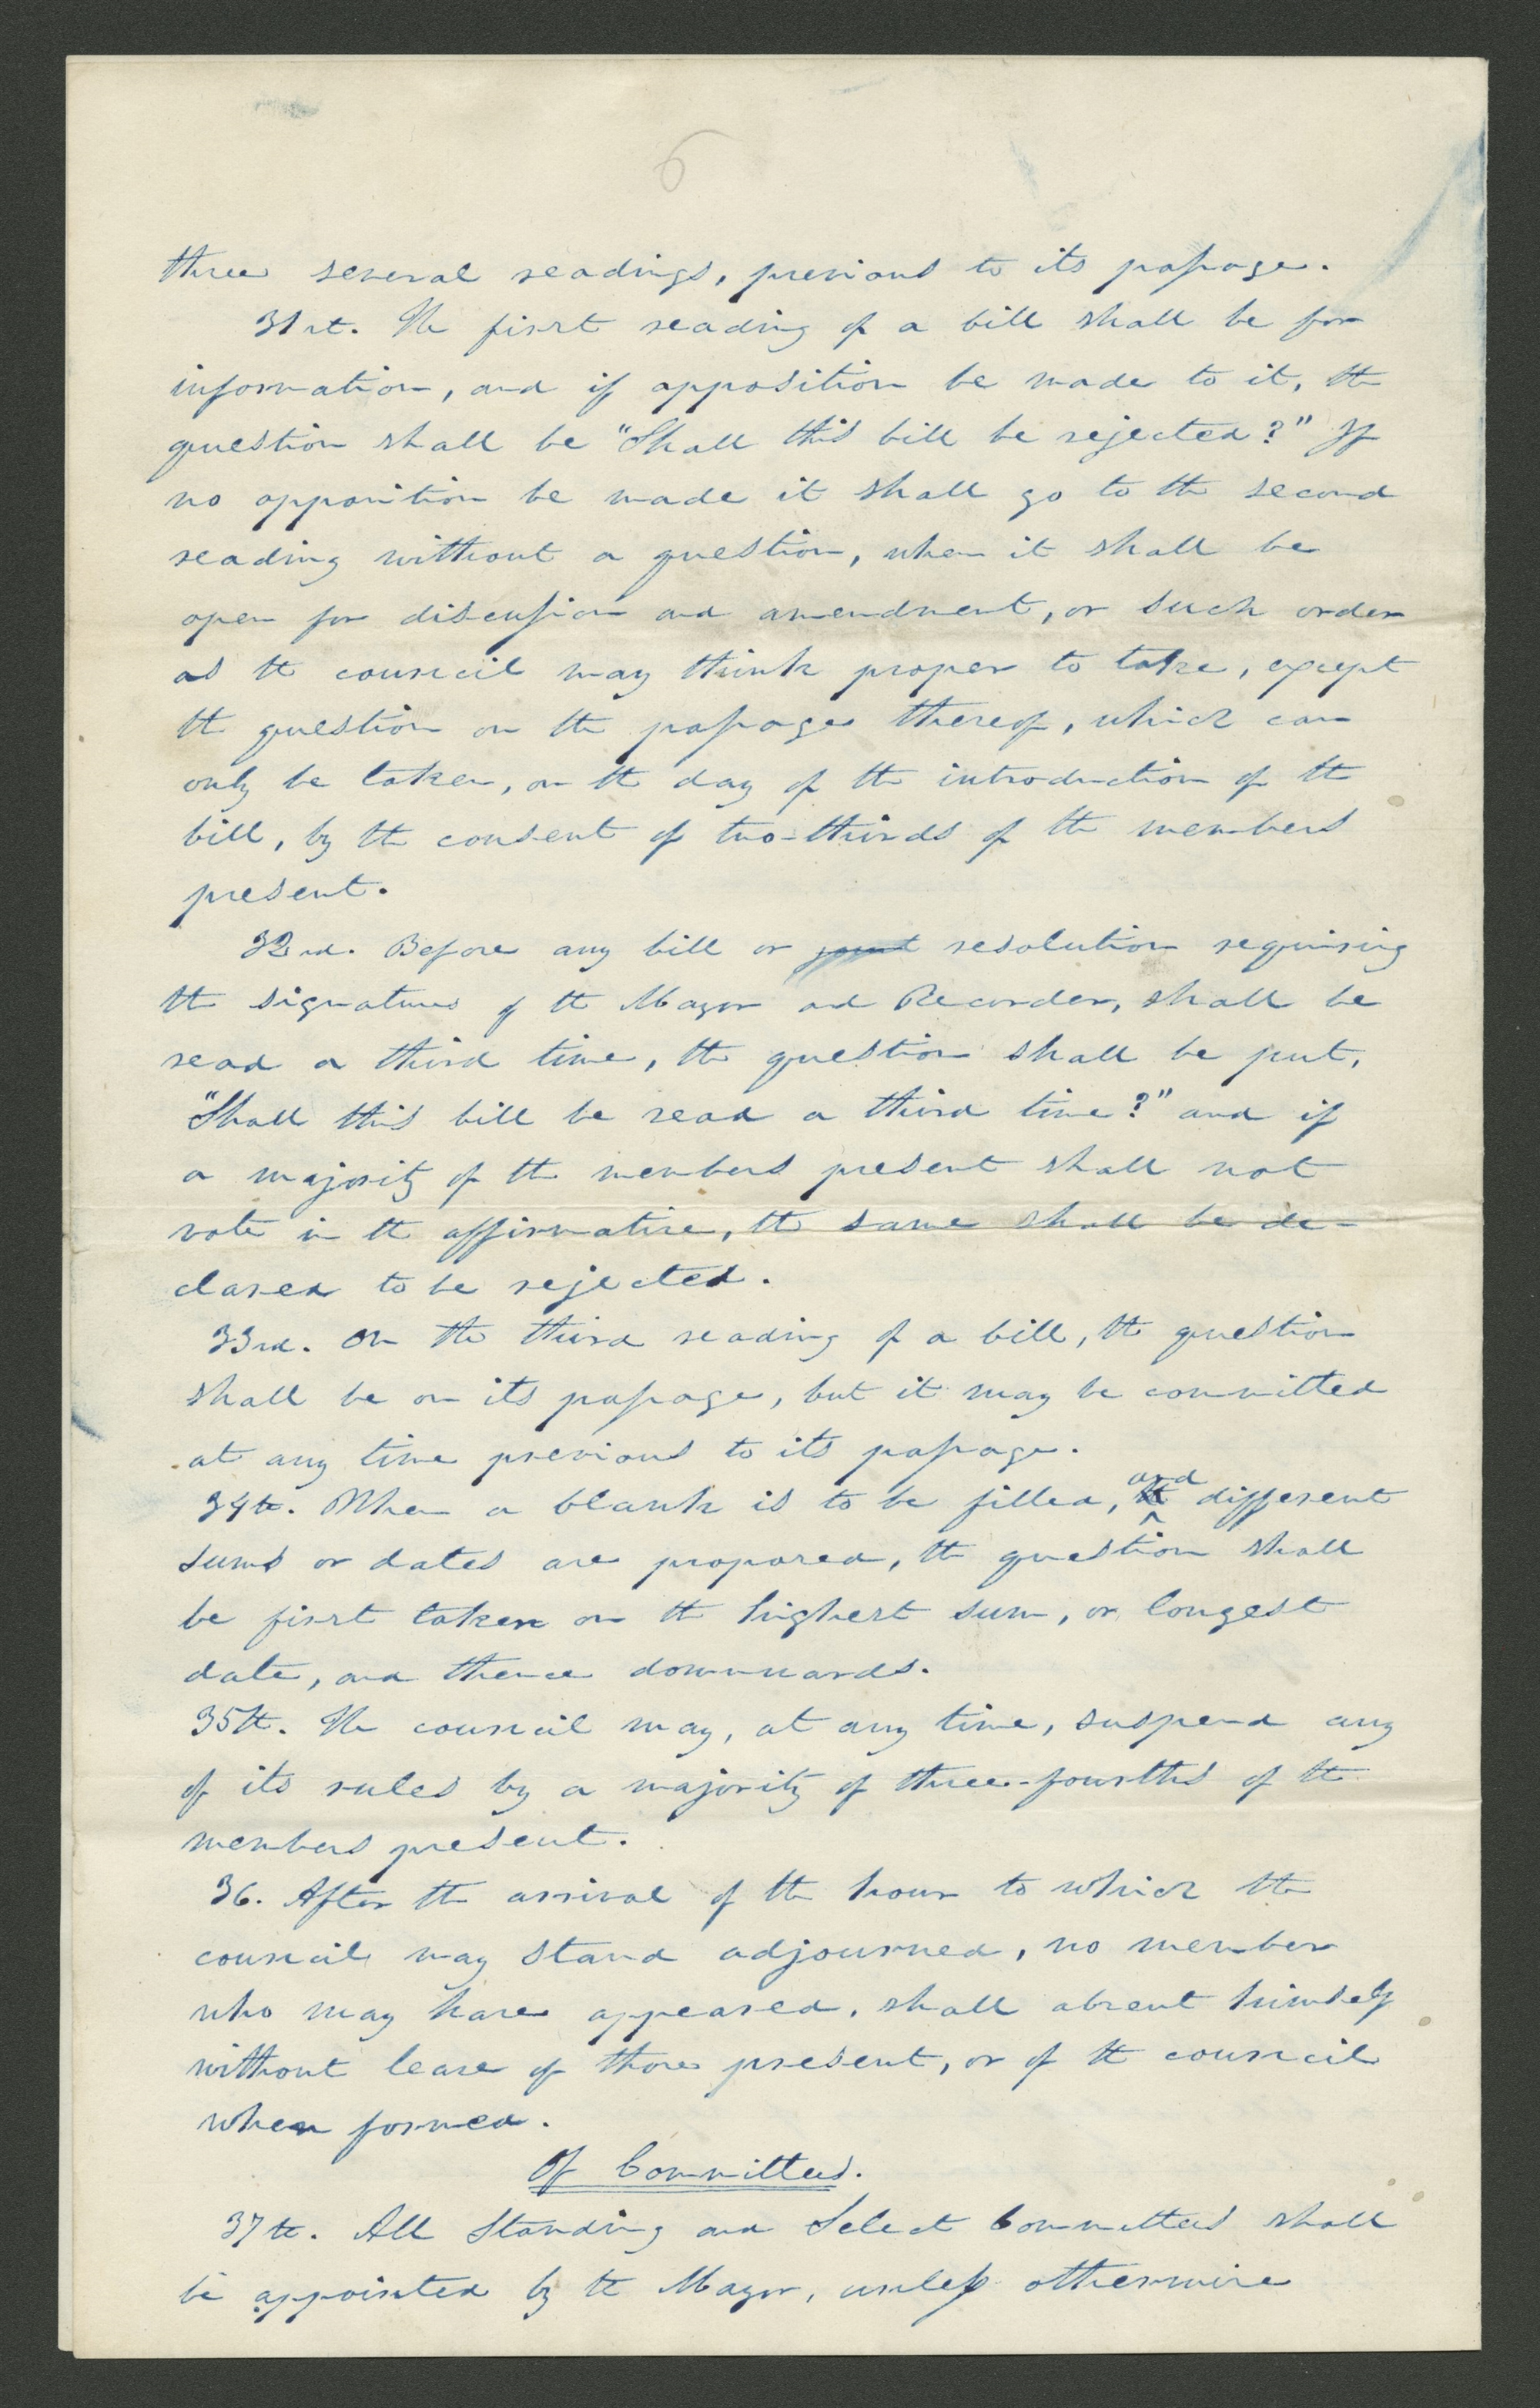 6
three several readings, previous to its passage.
31st. The first reading of a bill shall be for
information, and if opposition be made to it, the
question shall be "Shall this bill be rejected?" If
no opposition be made it shall go to the second
reading without a question, when it shall be
open for discussion and amendment, or such order
as the council may think proper to take, except
the question on the passage thereof, which can
only be taken, on the day of the introduction of the
bill, by the consent of two-thirds of the members
present.
32nd. Before any bill or joint resolution requiring
the signatures of the Mayor and Recorder, shall be
read a third time, the question shall be put,
"Shall this bill be read a third time?" and if
a majority of the members present shall not
vote in the affirmative, the same shall be de-
clared to be rejected.
33rd. On the third reading of a bill, the question
shall be on its passage, but it may be committed
at any time previous to its passage.
34th. When a blank is to be filled, and different
sums or dates are proposed, the question shall
be first taken on the highest sum, or longest
date, and thence downwards.
35th. The council may, at any time, suspend any
of its rules by a majority of three-fourths of the
members present.
36. After the arrival of the hour to which the
council may stand adjourned, no member
who may have appeared, shall absent himself
without leave of those present, or of the council
when formed.
Of Committees.
37th. All Standing and Select Committees shall
be appointed by the Mayor, unless otherwise